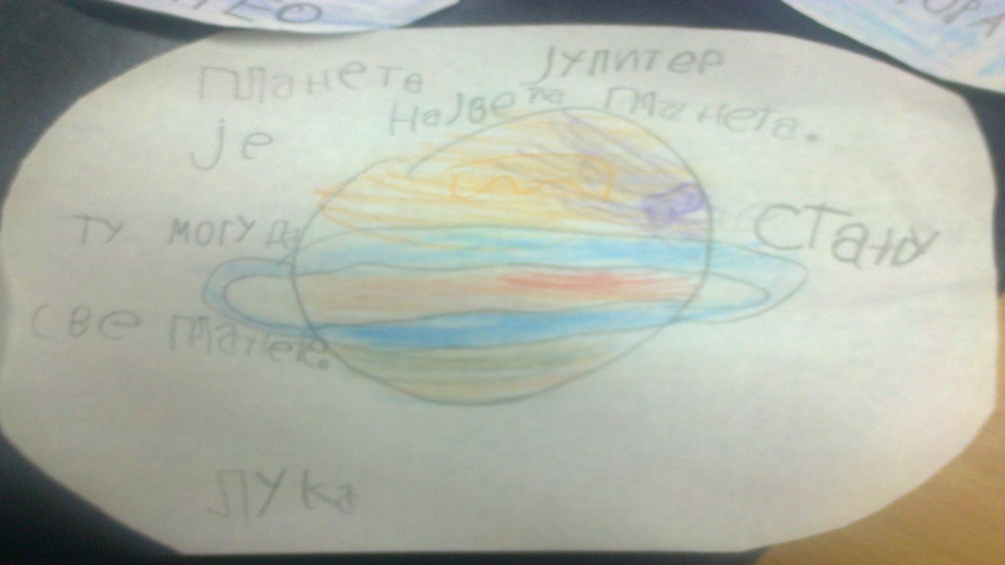 ТЕО
ТОРА
Планета Јупитер
је највећа планета.
ту могу да стану
све планете.
ЛУКА